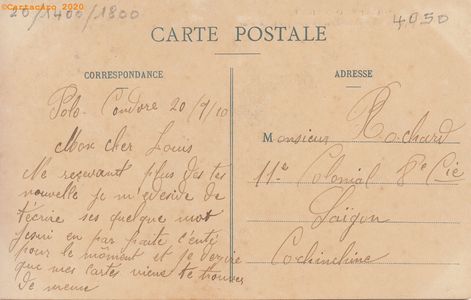 ©Cartacaro 2020
20/1400/1800
4050
CARTE POSTALE
CORRESPONDANCE
ADRESSE
Polo-Condore 20/7/10
Mon Cher Louis
Ne recevant plus das tes
nouvelle je m'edeside de
t'écrire ses quelque mot
en par faite
pour le môment et je
que mes cartes viene te trouver
de meme
Monsieur Rochard
11e Colonial 8e Cie
Saïgon
Cochinchine